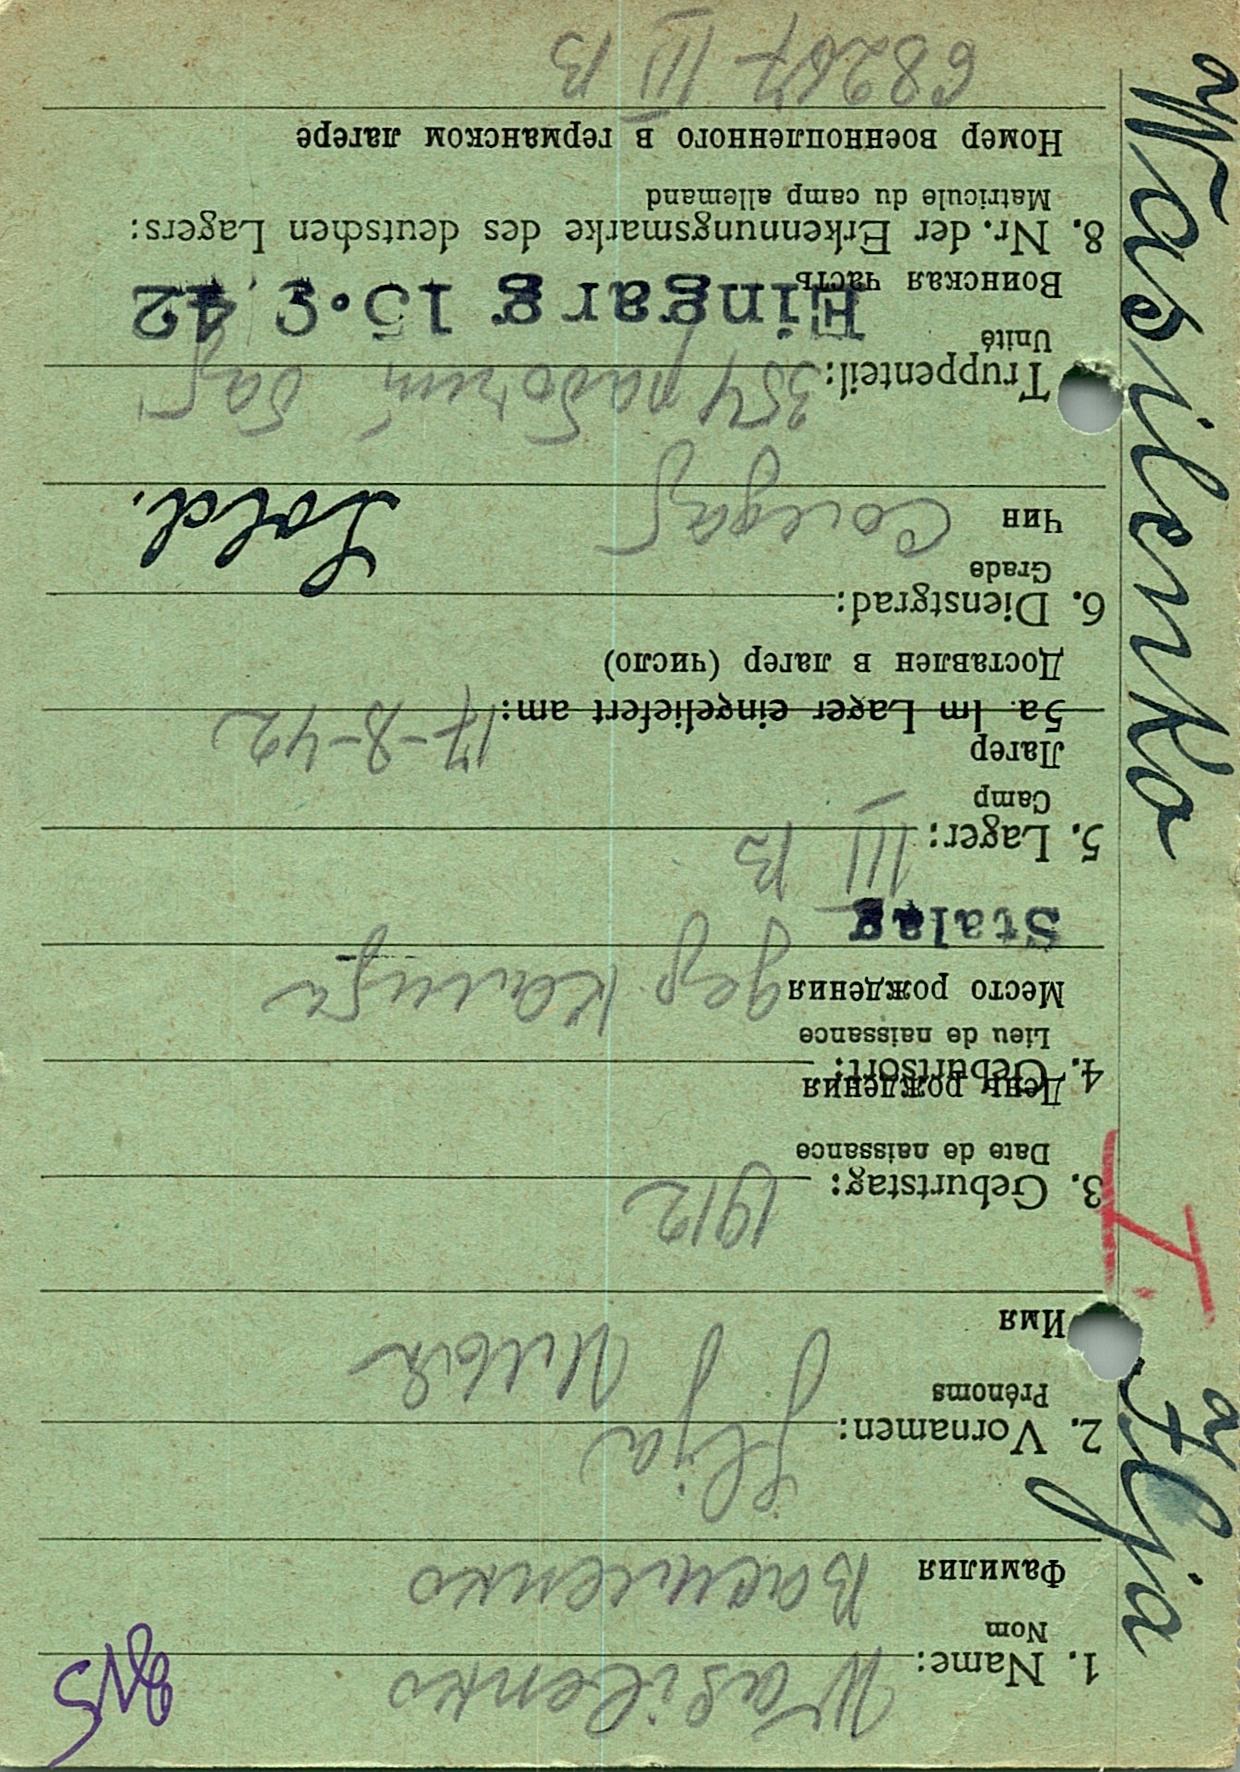 1. Name: Wasilenko
Nom
Фамилия Василенко
2. Vornamen: Ilja
Prénoms
Имя
3. Geburtstag: 1912
Date de naissance
День рождения
4. Geburtsort:
Lieu de naissance
Место рождения дер
Stalag
5. Lager: III B
Camp
Лагер
5a. Im Lager eingeliefert am: 17-8-42
Доставлен в лагер (число)
6. Dienstgrad:
Grade
Чин Солдат Sold.
Truppenteil: 354
Unité
Воинская часть
8. Nr. der Erkennungsmarke des deutschen Lagers:
Matricule du camp allemand
Номер военнопленного в германском лагере
68267 III B
Wasilenko
I.
Ilja